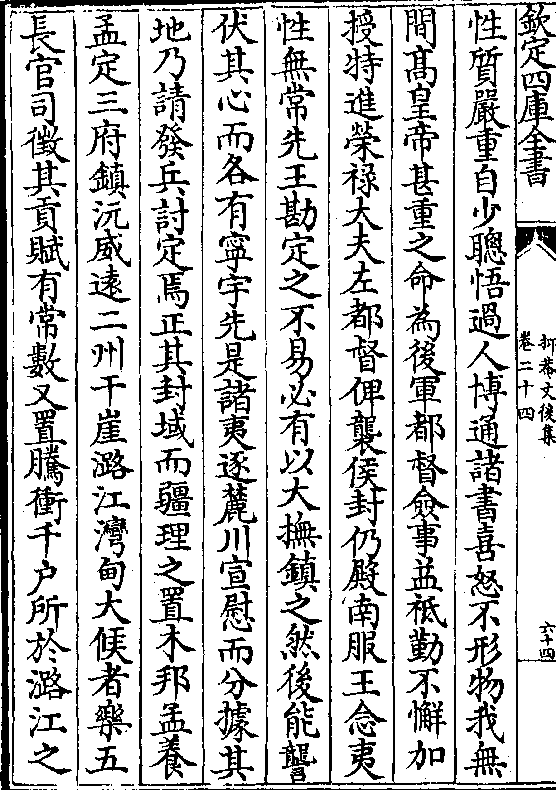 欽定四庫全書
抑菴文後集
卷二十四
六十四
性質嚴重自少聰悟過人博通諸書喜怒不形物我無
間髙皇帝甚重之命為後軍都督僉事益祗勤不懈加
授特進榮祿大夫左都督俾襲侯封仍殿南服王念夷
性無常先王勘定之不易必有以大撫鎮之然後能讋
伏其心而各有寧宇先是諸夷逐麓川宣慰而分據其
地乃請發兵討定焉正其封域而疆理之置木邦孟養
孟定三府鎮沅威遠二州干崖潞江灣甸大候者樂五
長官司徵其貢賦有常數又置騰衝千户所於潞江之